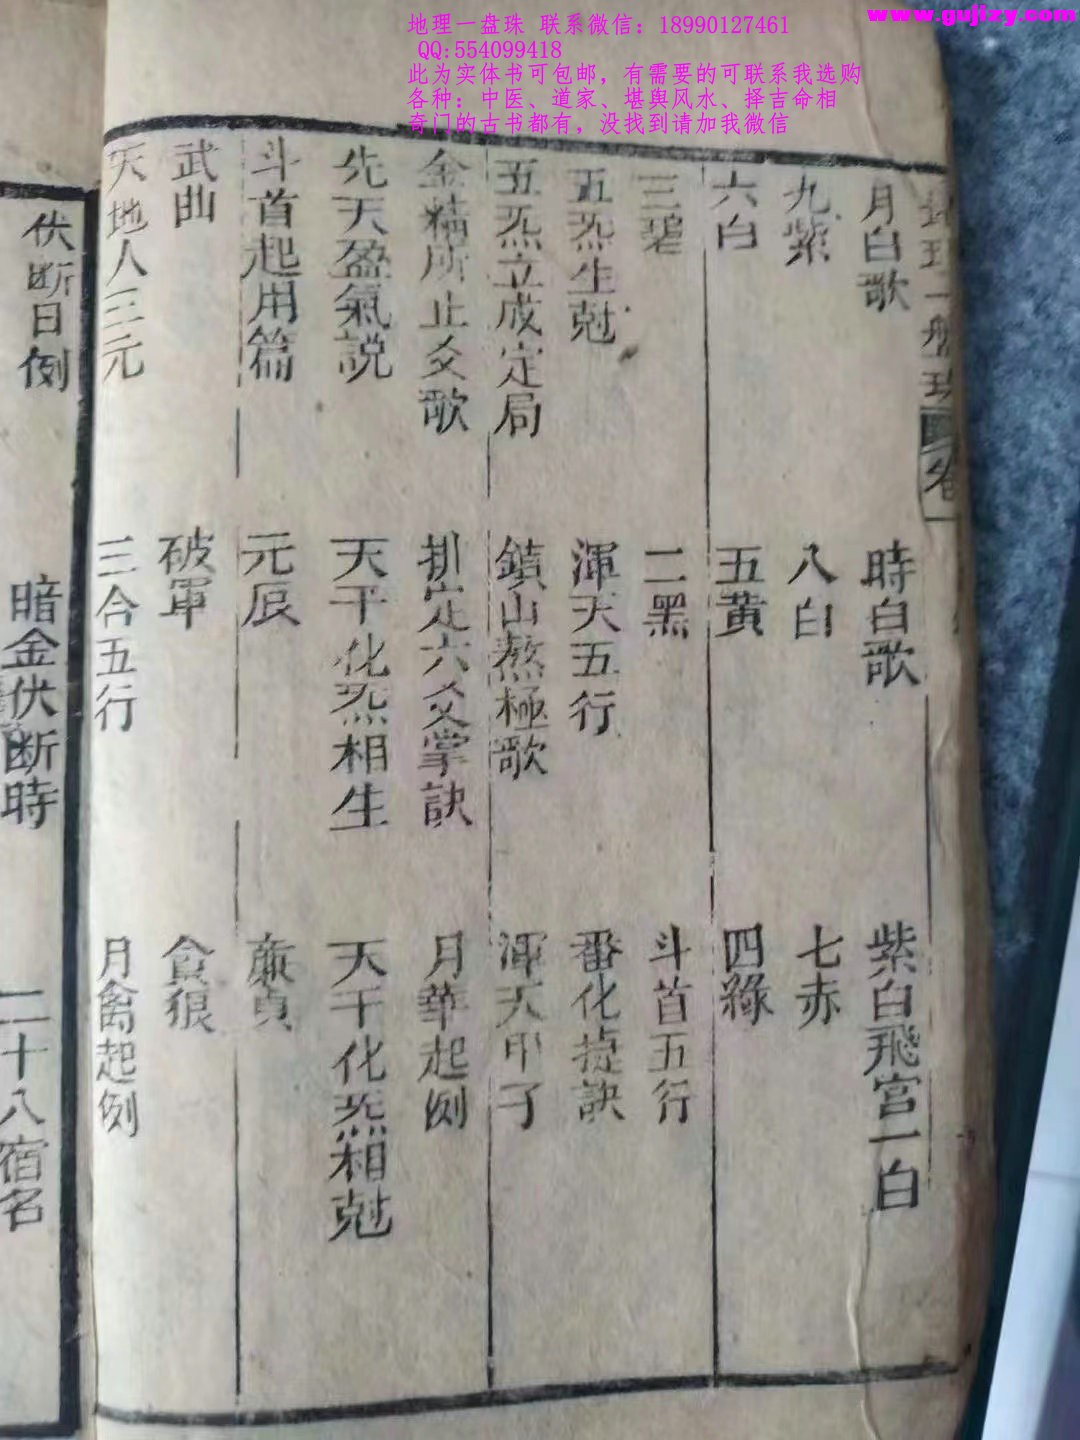 地理一盘珠 联系微信：18990127461
QQ:554099418
此为实体书可包邮，有需要的可联系我选购
各种：中医、道家、堪舆风水、择吉命相
奇门的古书都有，没找到请加我微信
www.gujizy.com
地理一盤珠 卷一
月白歌 時白歌 紫白飛宮一白
九紫 八白 七赤
六白 五黃 四綠
三碧 二黑 斗首五行
五炁生尅 渾天五行 番化掟訣
五炁立成定局 鎮山熬極歌 渾天甲子
金精所止爻歌 排定六爻掌訣 月華起例
先天盈氣説 天干化炁相生 天干化炁相尅
斗首起用篇 元辰 亷貞
武曲 破軍 貪狼
天地人三元 三合五行 月禽起例
伏断日例 暗金伏断時 二十八宿名